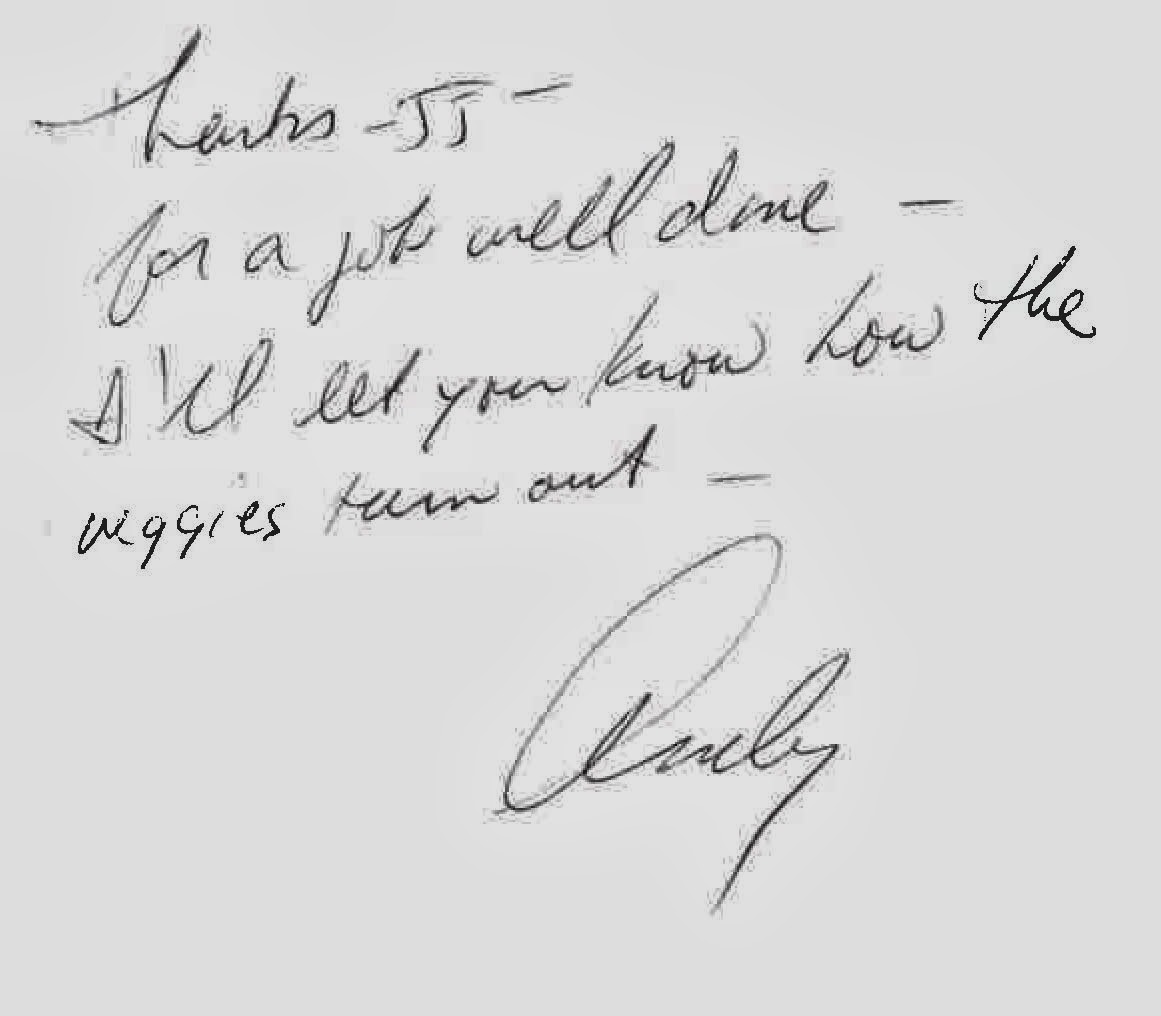 Thanks - JJ -
for a job well done -
I'll let you know how the
veggies turn out -